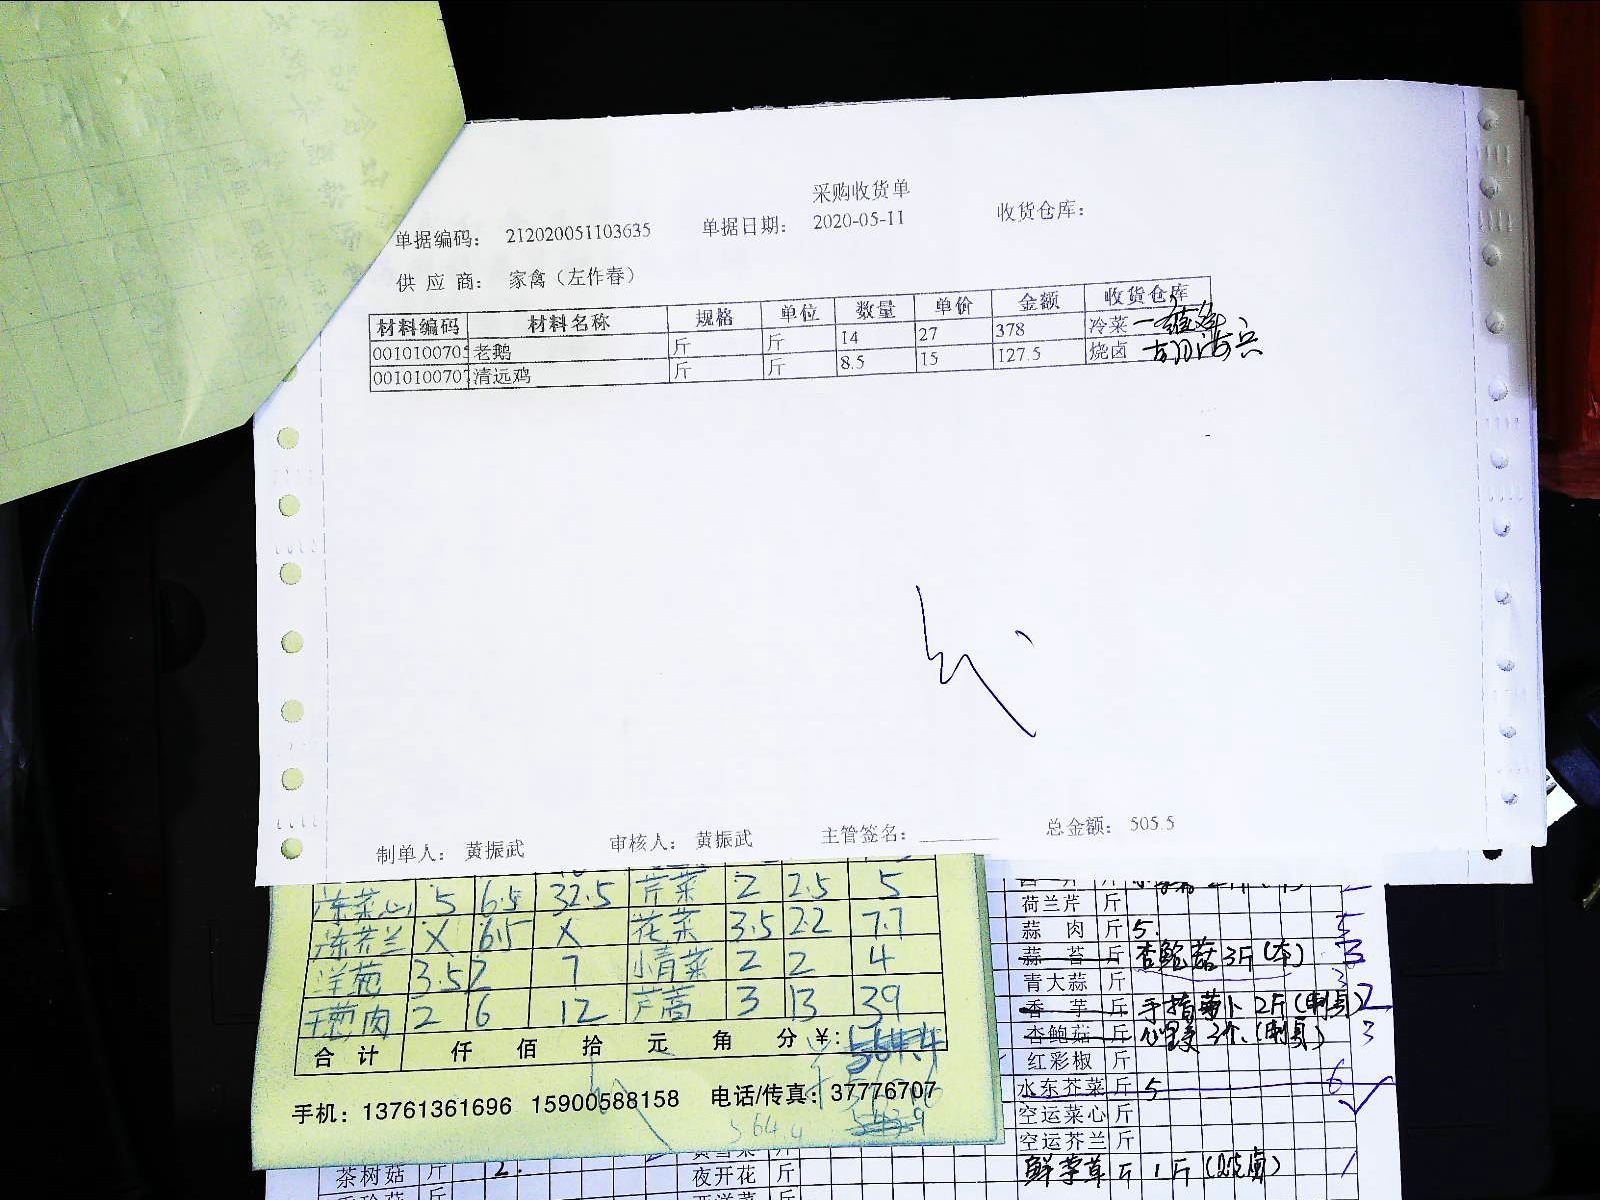 采购收货单
单据编码： 212020051103635 单据日期： 2020-05-11 收货仓库：
供 应 商： 家禽（左作春）
材料编码 材料名称 规格 单位 数量 单价 金额 收货仓库
0010100705 老鹅 斤 斤 14 27 378 冷菜
0010100707 清远鸡 斤 斤 8.5 15 127.5 烧卤
制单人： 黄振武 审核人： 黄振武 主管签名： 总金额： 505.5
冻菜心 5 6.5 32.5 芹菜 2 2.5 5
冻芥兰 X 6.5 X 花菜 3.5 2.2 7.7
洋葱 3.5 2 7 小青菜 2 2 4
干葱肉 2 6 12 芦蒿 3 13 39
合 计 仟 佰 拾 元 角 分 ¥: 564.4
手机：13761361696 15900588158 电话/传真：37776707
564.4
荷兰芹 斤
蒜 肉 斤 5.
蒜 苔 斤 杏鲍菇 3斤 3
青大蒜 斤 3
香 芋 斤 手指萝卜 2斤 2
杏鲍菇 斤 心里美 3个 3
红彩椒 斤
水东芥菜 斤 5 6
空运菜心 斤
空运芥兰 斤
鲜草草 斤 1斤
茶树菇 斤 2.
夜开花 斤